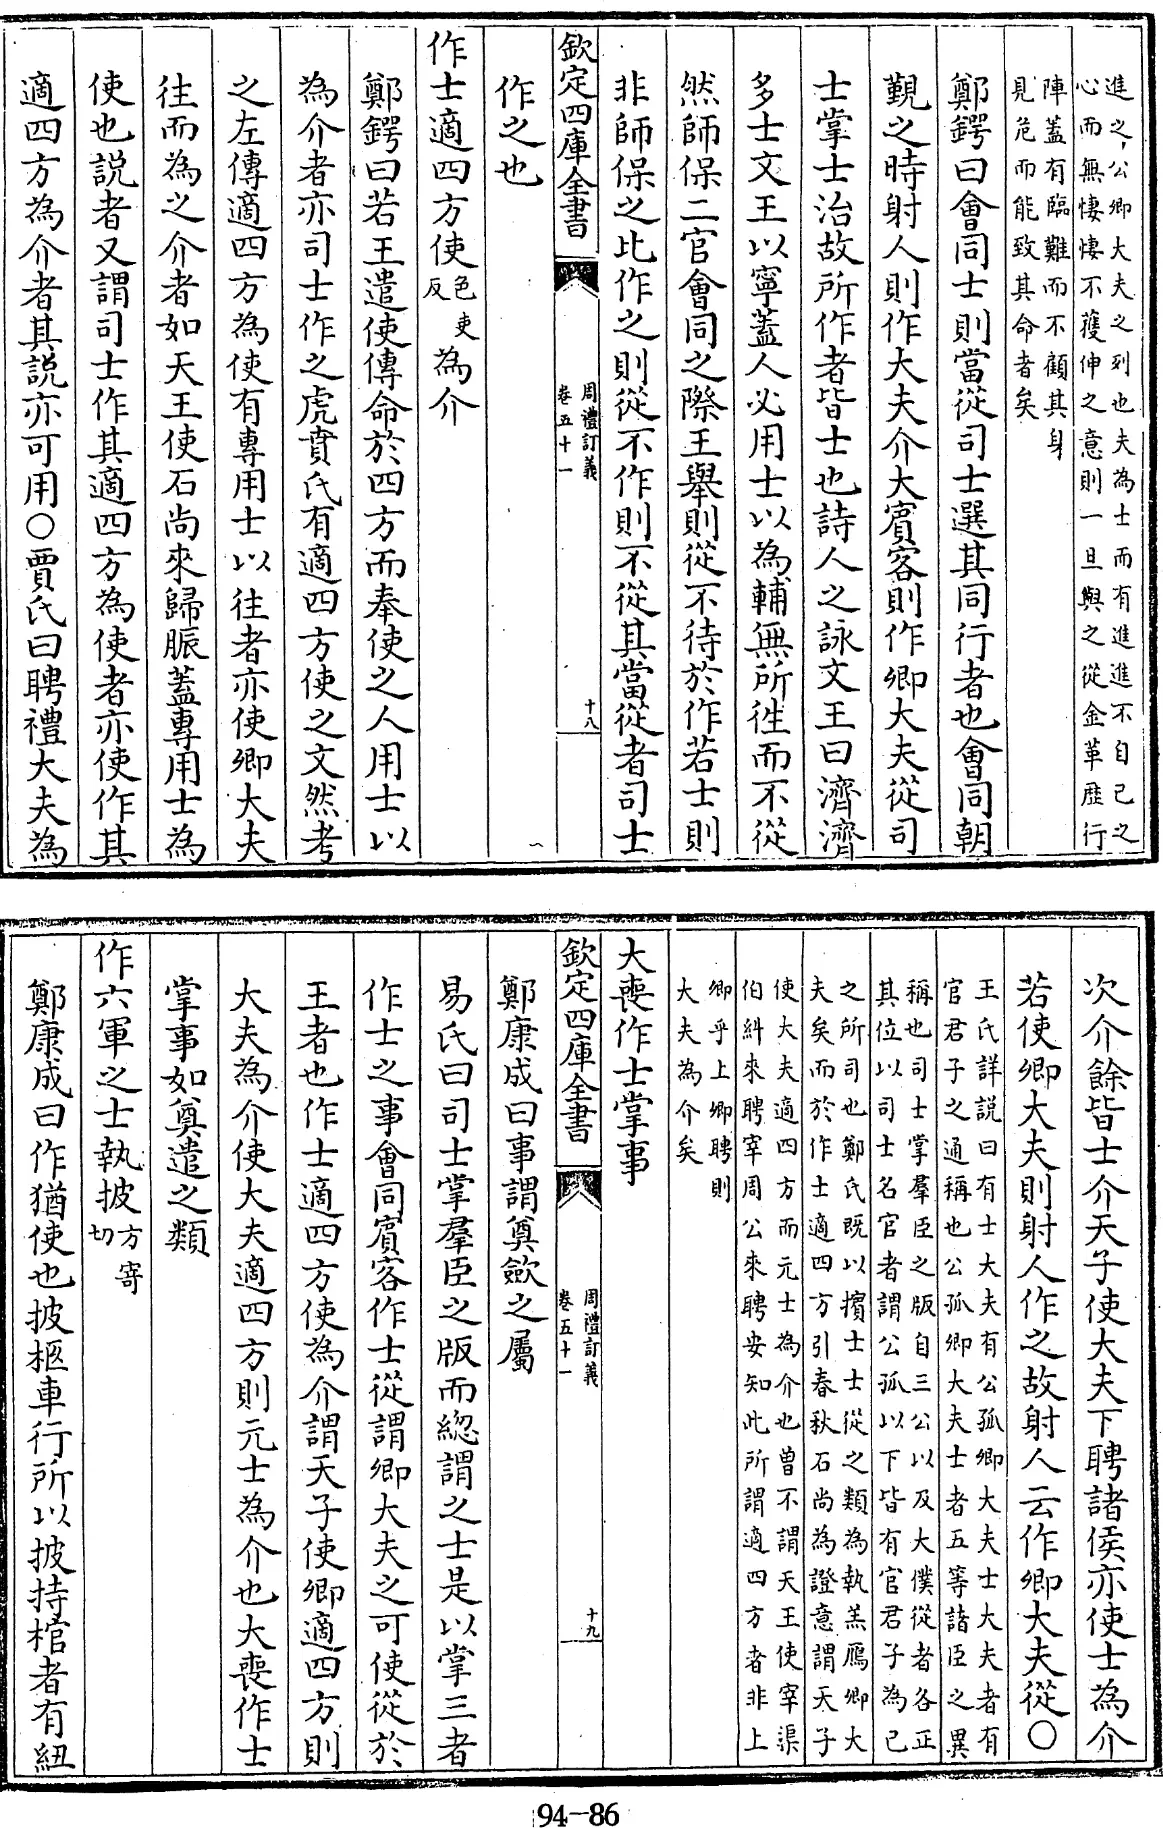 進之公卿大夫之列也夫為士而有進進不自己之
心而無悽悽不獲伸之意則一旦與之從金革歷行
陣蓋有臨難而不顧其身
見危而能致其命者矣
鄭鍔曰會同士則當從司士選其同行者也會同朝
覲之時射人則作大夫介大賓客則作卿大夫從司
士掌士治故所作者皆士也詩人之詠文王曰濟濟
多士文王以寧蓋人必用士以為輔無所徃而不從
然師保二官會同之際王舉則從不待於作若士則
非師保之比作之則從不作則不從其當從者司士
欽定四庫全書
周禮訂義
卷五十一
十八
作之也
作士適四方使色吏反為介
鄭鍔曰若王遣使傳命於四方而奉使之人用士以
為介者亦司士作之虎賁氏有適四方使之文然考
之左傳適四方為使有專用士以往者亦使卿大夫
往而為之介者如天王使石尚來歸脤蓋專用士為
使也說者又謂司士作其適四方為使者亦使作其
適四方為介者其說亦可用○賈氏曰聘禮大夫為
次介餘皆士介天子使大夫下聘諸侯亦使士為介
若使卿大夫則射人作之故射人云作卿大夫從○
王氏詳說曰有士大夫有公孤卿大夫士大夫者有
官君子之通稱也公孤卿大夫士者五等諸臣之異
稱也司士掌羣臣之版自三公以及大僕從者各正
其位以司士名官者謂公孤以下皆有官君子為已
之所司也鄭氏既以擯士士從之類為執羔鴈卿大
夫矣而於作士適四方引春秋石尚為證意謂天子
使大夫適四方而元士為介也曾不謂天王使宰渠
伯糾來聘宰周公來聘安知此所謂適四方者非上
卿乎上卿聘則
大夫為介矣
大喪作士掌事
欽定四庫全書
周禮訂義
卷五十一
十九
鄭康成曰事謂奠斂之屬
易氏曰司士掌羣臣之版而總謂之士是以掌三者
作士之事會同賓客作士從謂卿大夫之可使從於
王者也作士適四方使為介謂天子使卿適四方則
大夫為介使大夫適四方則元士為介也大喪作士
掌事如奠遣之類
作六軍之士執披方寄切
鄭康成曰作猶使也披柩車行所以披持棺者有紐
94-86